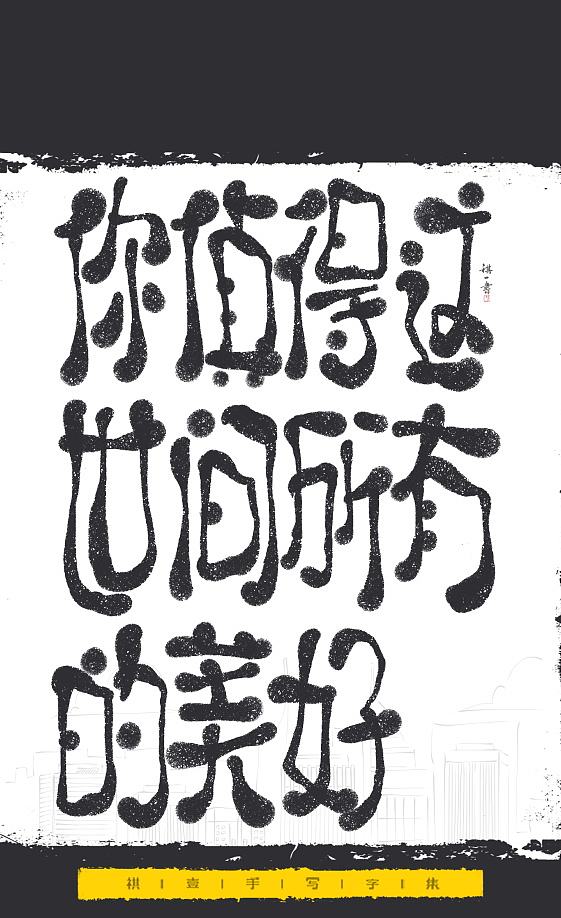 你值得这
世间所有
的美好
祺一書
祺 | 壹 | 手 | 写 | 字 | 集